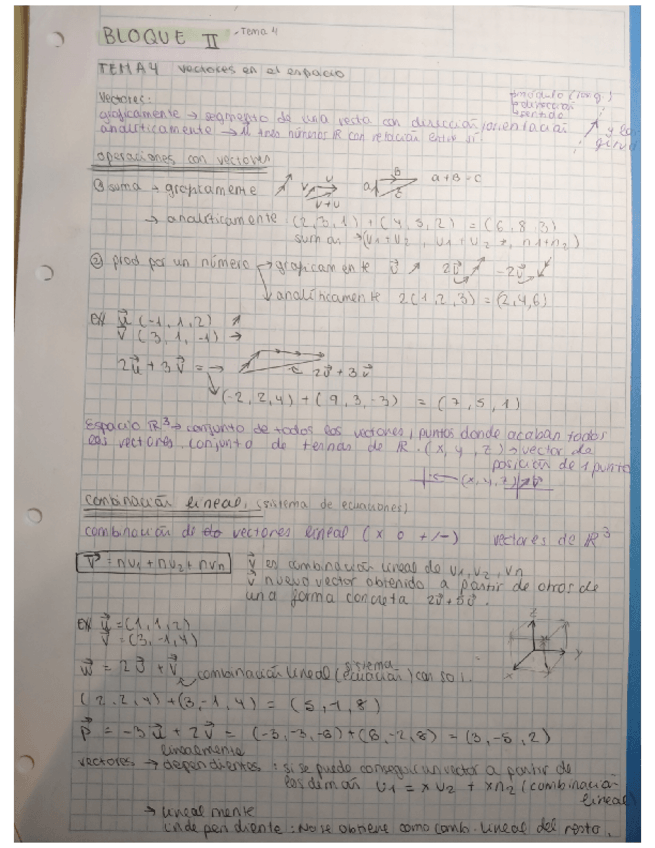 BLOQUE II - Tema 4
TEMA 4 vectores en el espacio
Vectores:
módulo (long.)
dirección
sentido
gráficamente → segmento de una recta con dirección y orientación
analíticamente → 3 números R con relación entre sí.
operaciones con vectores
① suma → graficamente
V U
V+U
a B C
a+B=C
→ analíticamente (2,3,1)+(4,5,2) = (6,8,3)
② prod por un número → graficamente
2 -2
analíticamente 2(1,2,3) = (2,4,6)
EX u⃗ (-1,1,2)
v⃗ (3,1,-1)
2u⃗ + 3v⃗ = →
2u⃗ + 3v⃗
(-2,2,4)+(9,3,-3) = (7,5,1)
Espacio R³ → conjunto de todos los vectores, puntos donde acaban todos
los vectores. conjunto de ternas de R. (x,y,z) → vector de
posición de 1 punto
(x,y,z)
combinación lineal, (sistema de ecuaciones)
combinación de vectores lineal (x o +/-) vectores de R³
V⃗ = nv1 + nv2 + nvn
v⃗ es combinación lineal de v1, v2, vn
v⃗ nuevo vector obtenido a partir de otros de
una forma concreta 2v⃗+5v⃗.
EX u⃗ = (1,1,2)
v⃗ = (3,-1,4)
z
y
x
w⃗ = 2u⃗ + v⃗
combinación lineal (sistema ecuación) con sol.
(2,2,4)+(3,-1,4) = (5,1,8)
p⃗ = -3u⃗ + 2v⃗ = (-3,-3,-6)+(6,-2,8) = (3,-5,2)
linealmente
vectores → dependientes: si se puede conseguir un vector a partir de
los demás v1 = xv2 + xn2 (combinación
lineal)
→ linealmente
independiente: No se obtiene como comb. lineal del resto.